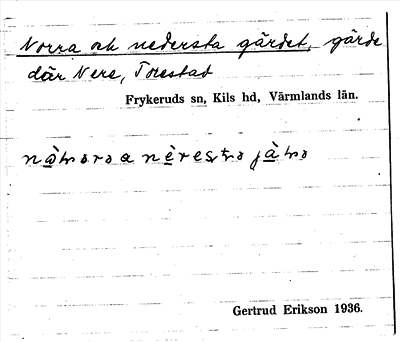 Norra och nedersta gärdet, gärde
där Nere, Torestad
Frykeruds sn, Kils hd, Värmlands län.
Gertrud Erikson 1936.